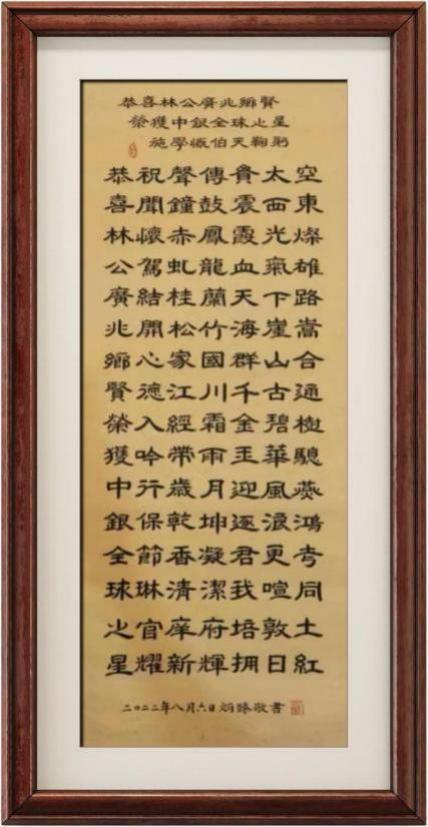 恭喜林公廣兆鄉賢
榮獲中銀全球之星
施學概伯天鞠躬
恭祝聲傳貴太空
喜聞鐘鼓震西東
林懷赤鳳霞光燦
公駕虬龍血氣雄
廣結桂蘭天下路
兆開松竹海崖嵩
鄉心家國群山合
賢德江川千古通
榮入經霜金碧樹
獲吟帶雨玉華驄
中行歲月迎風燕
銀保乾坤逐浪鴻
全節香凝君更
球琳清潔我喧同
之官庠府培敦土
星耀新輝擁日紅
二〇二二年八月六日 敬書